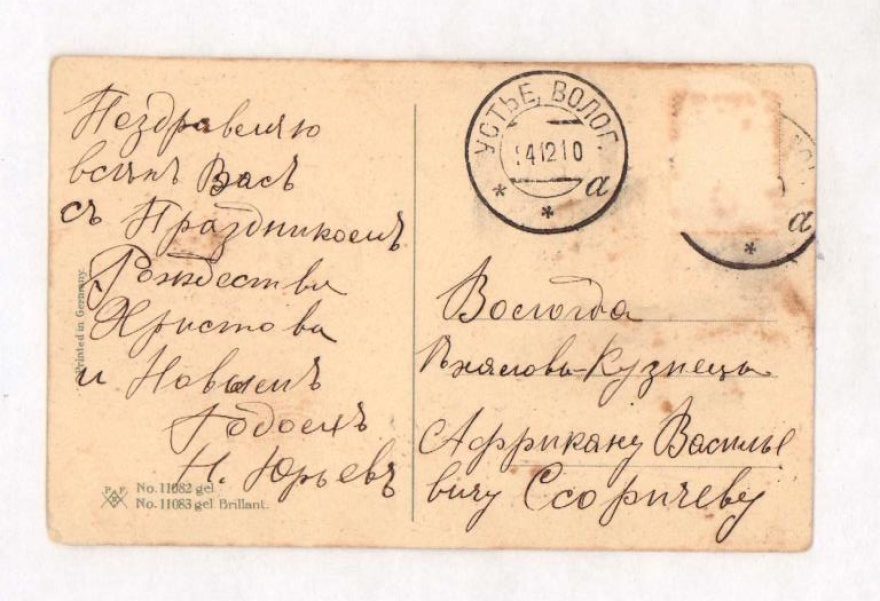 Поздравляю
всѣхъ Васъ
съ Праздникомъ
Рождества
Христова
и Новымъ
Годомъ
Н. Юрьевъ
Printed in Germany
PFB
No. 11082 gel
No. 11083 gel Brillant.
УСТЬЕ, ВОЛОГ.
241210
а
а
Вологда
Кузнецы
Африкану Василье
вичу Ссоричеву